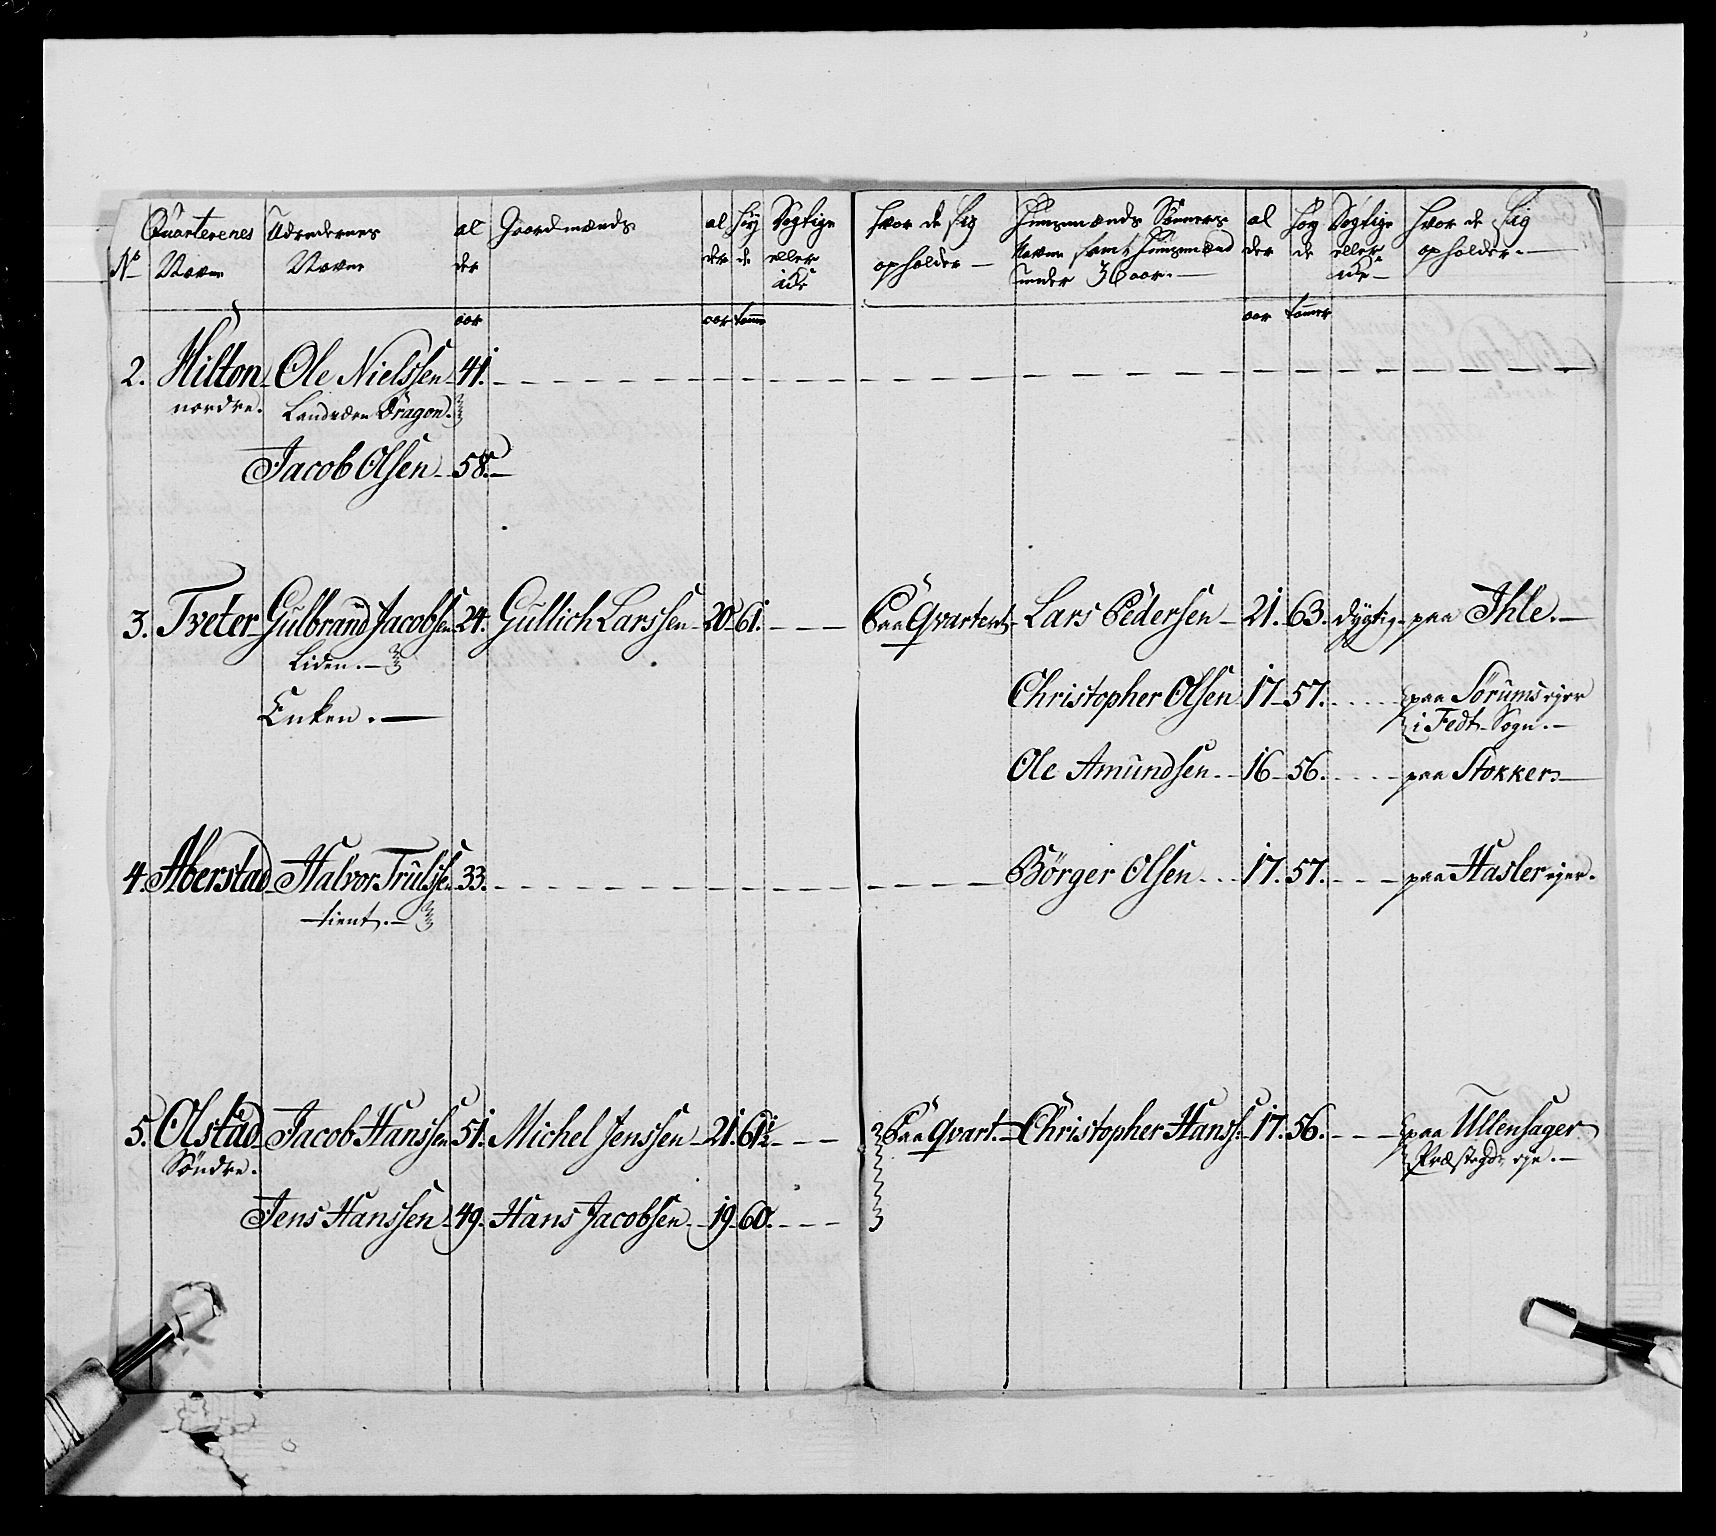 No Quarterenes Navne | Udredernes Navne | al der | Gaardmænds | al der | Høy de | Dygtige eller icke | Hvor de sig opholder | Huusmænds Sønners Navne samt Huusmænd under 36 aar. | al der | Høy de | Dygtige eller icke | Hvor de sig opholder.
aar | aar | tomer | aar | tommer
2. Hilton Ole Nielssen 41.
nordre. Landværn Dragon.
Jacob Olsen 58.
3. Tveter Gulbrand Jacobsen 24. Gullich Larssen 20 61. Paa Qvarteret Lars Pedersen 21. 63. dygtig paa Ihle.
Liden.
Enken. Christopher Olsen 17 57. paa Sørums ejer
i Fedt Sogn.
Ole Amundsen 16 56. paa Stokker
4. Aberstad Halvor Trulsse 33. Börger Olsen 17. 57. paa Hasler ejer.
tient.
5. Olstad Jacob Hanssen 51. Michel Jenssen 21. 61½ Paa qvart. Christopher Hanss: 17. 56. paa Ullensager
Söndre. Præstegds eje.
Jens Hanssen 49. Hans Jacobsen 19 60.